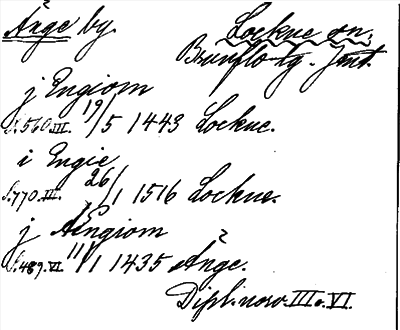 Änge by. Lockne sn.
Brunflo tg. Jmt.
j Engiom
S. 560. III. 19/5 1443 Lockne.
i Engie
S. 770. III. 26/1 1516 Lockne.
j Ængiom
S. 489. VI 11/1 1435 Änge.
Dipl. norv. III o. VI.